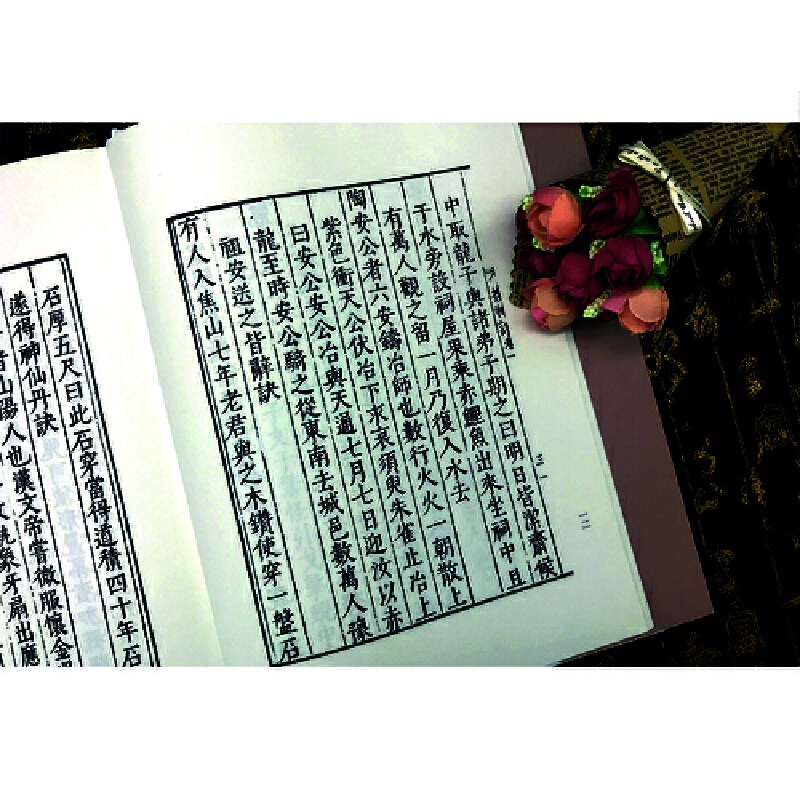 中取龍子與諸弟子期之曰明日皆潔齋候
于水旁設祠屋果乘赤鯉魚出來坐祠中且
有萬人觀之留一月乃復入水去
陶安公者六安鑄冶師也數行火火一朝散上
紫色衝天公伏冶下求哀須臾朱雀止冶上
曰安公安公冶與天通七月七日迎汝以赤
龍至時安公騎之從東南去城邑數萬人豫
祖安送之皆辭訣
有人入焦山七年老君與之木鑽使穿一盤石
石厚五尺曰此石穿當得道積四十年石
遂得神仙丹訣
者山陽人也漢文帝嘗微服懷金
牙扇出應